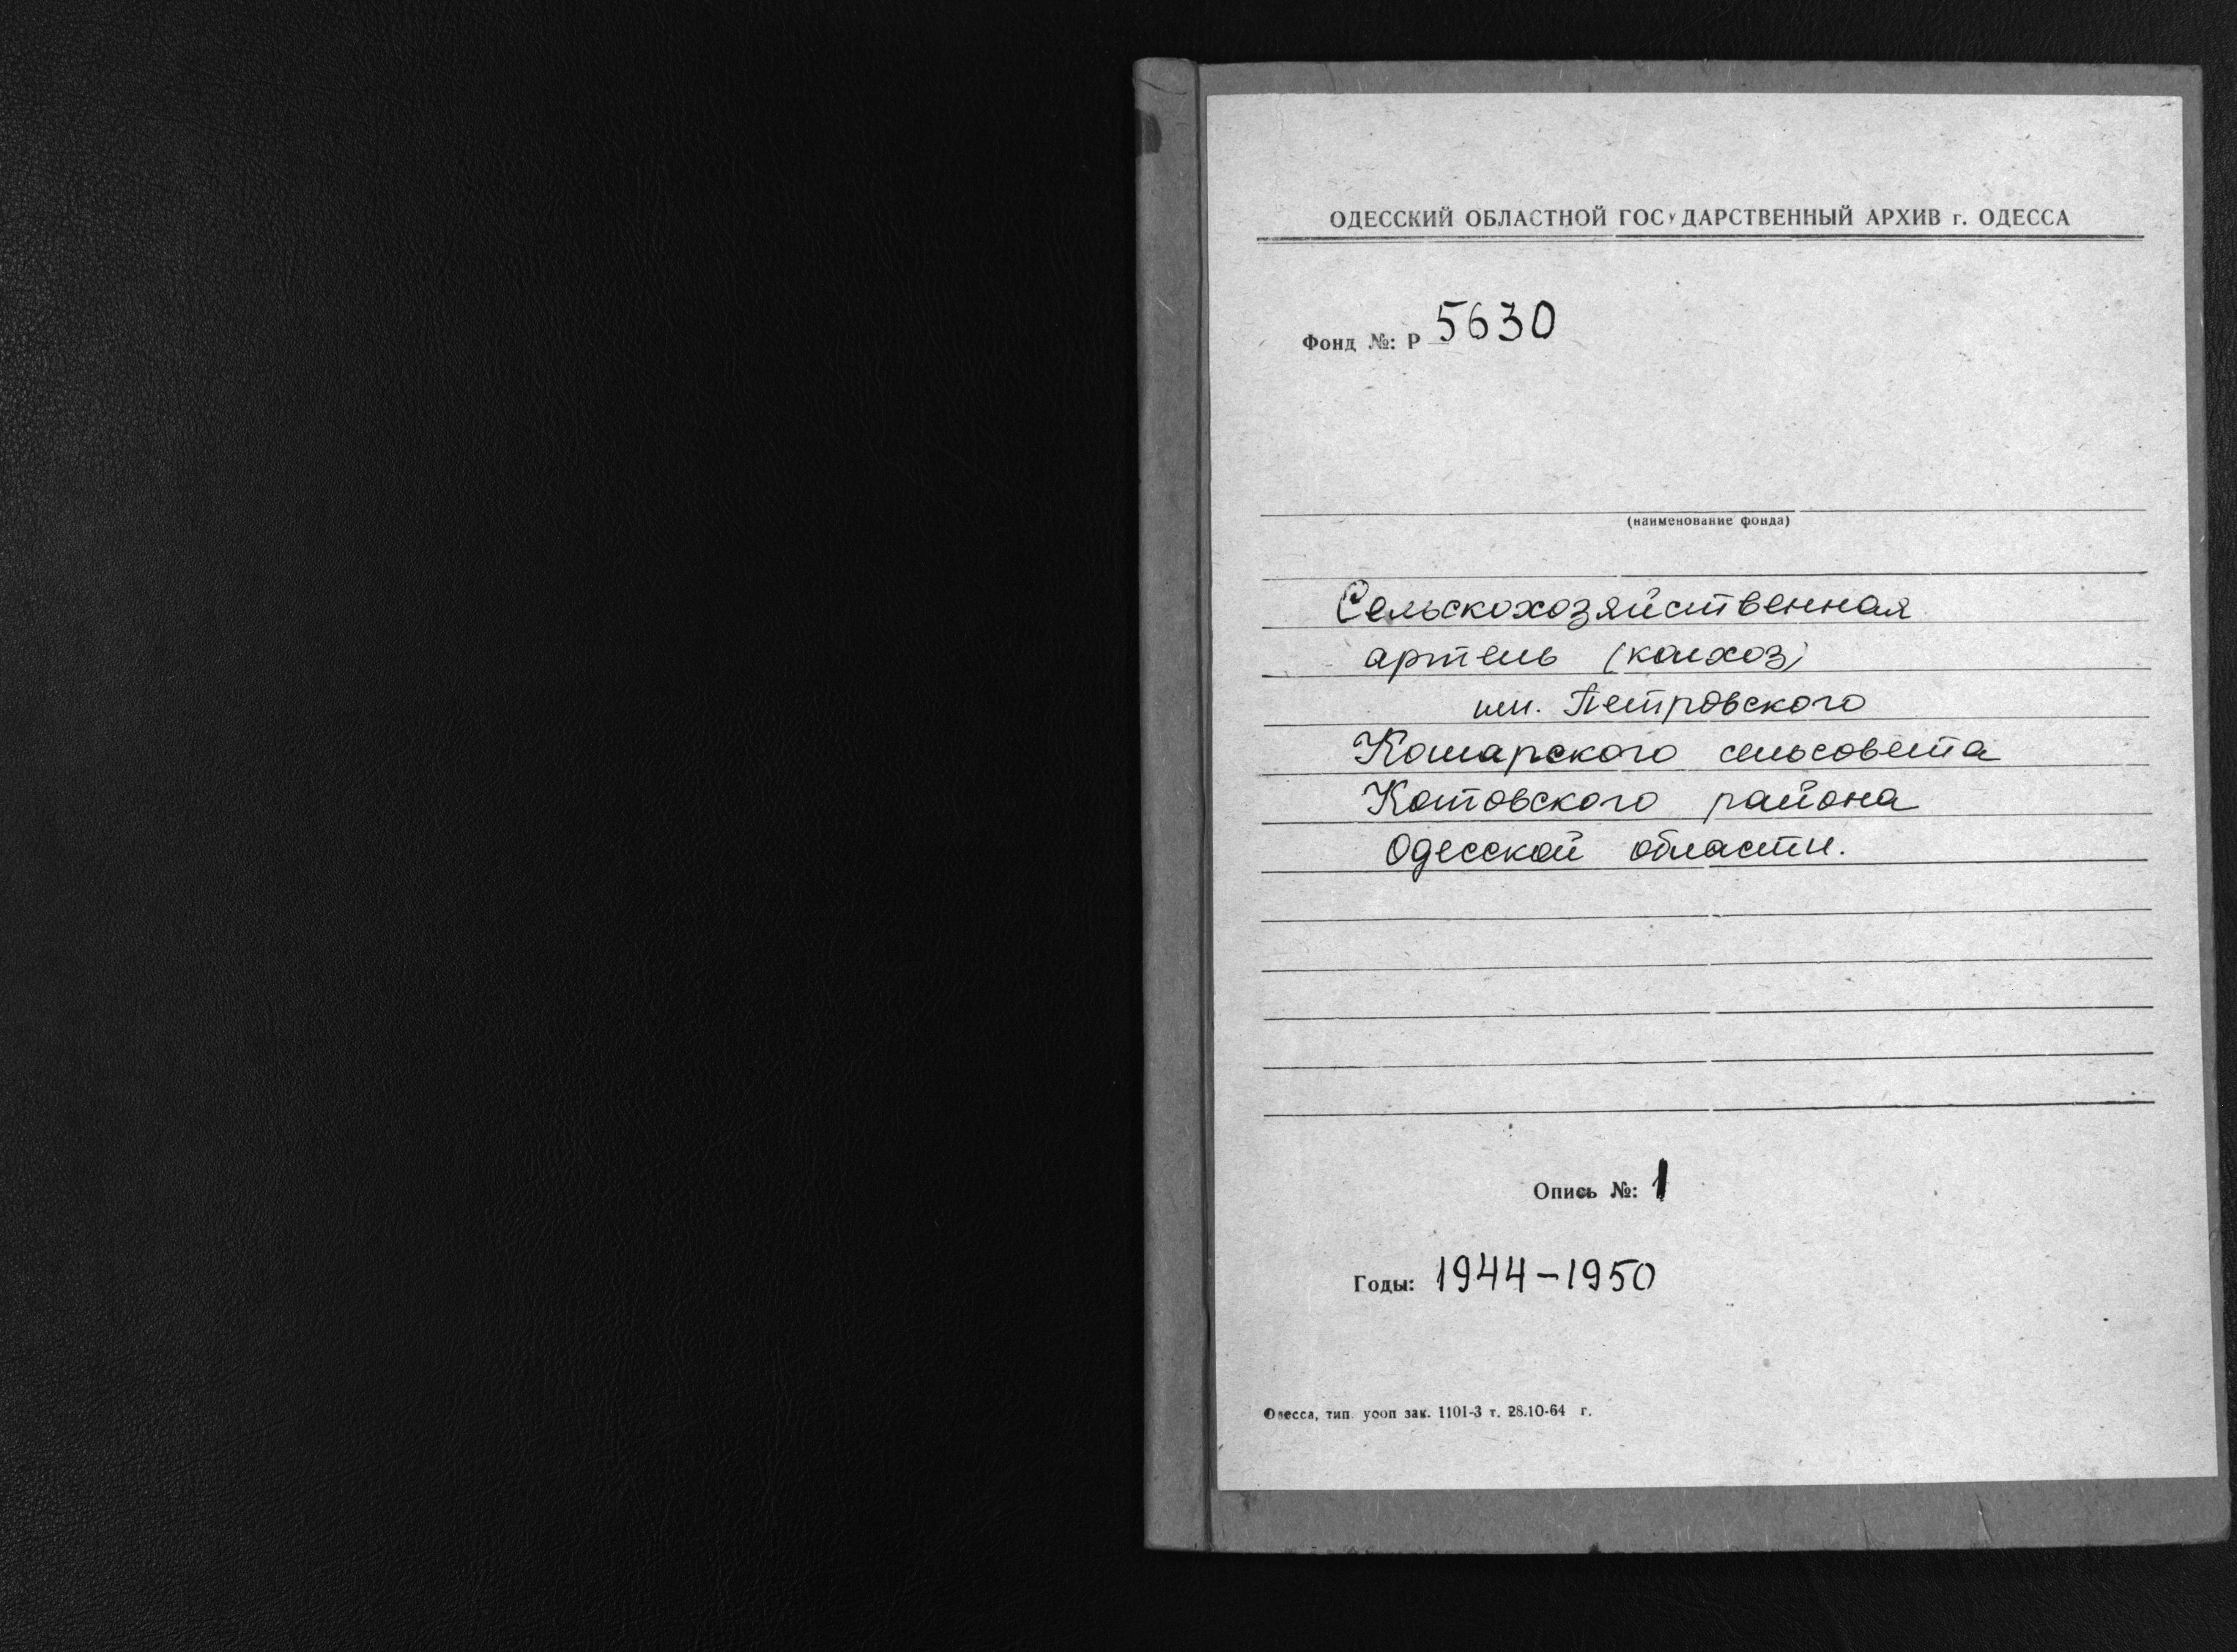 ОДЕССКИЙ ОБЛАСТНОЙ ГОСУДАРСТВЕННЫЙ АРХИВ г. ОДЕССА
Фонд №: Р 5630
(наименование фонда)
Сельскохозяйственная
артель (колхоз)
им. Петровского
Кошарского сельсовета
Котовского района
Одесской области.
Опись №: 1
Годы: 1944-1950
Одесса, тип. уооп зак. 1101-3 т. 28.10-64 г.